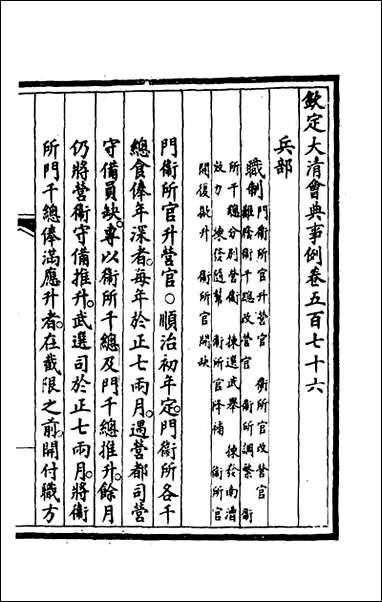 欽定大清會典事例卷五百七十六
兵部
職制
門衞所官升營官 衞所官改營官 衞
難廕衞千總改營官 衞所調繁 衞
所千總分別營衞 揀選武舉 揀發南漕
放力 揀發隨幫 衞所官降補 衞所官
開復敍升 衞所官開缺
門衞所官升營官○順治初年定門衞所各千
總食俸年深者每年於正七兩月遇營都司營
守備員缺專以衞所千總及門千總推升餘月
仍將營衞守備推升武選司於正七兩月將衞
所門千總俸滿應升者在截限之前開付職方